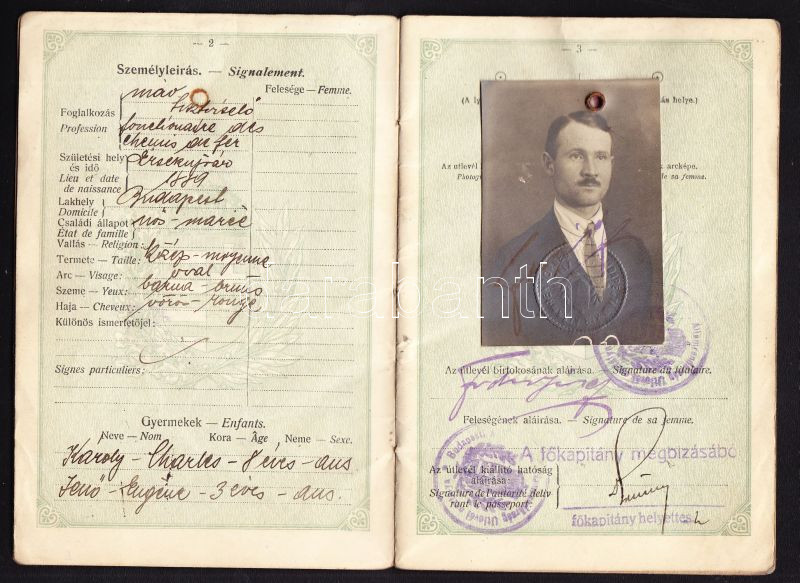 — 2 —
Személyleirás. — Signalement.
máv
Felesége — Femme.
Foglalkozás
Profession
fonctionaire des
chemin de fer
Születési hely
és idő
Lieu et date
de naissance
Érsekujvár
1889
Lakhely
Domicile
Budapest
Családi állapot
État de famille
nős - marié
Vallás — Religion:
Termete — Taille: közép - moyenne
Arc — Visage: ovál
Szeme — Yeux: barna - bruns
Haja — Cheveux: vörös - rouge
Különös ismertetőjel:
Signes particuliers:
Gyermekek — Enfants.
Neve — Nom Kora — Âge Neme — Sexe.
Károly - Charles - 8 éves - ans
Jenő - Eugène - 3 éves - ans.
— 3 —
(A ly
ás helye.)
Az útlevél
k arcképe.
Photogr
de sa femme.
Az útlevél birtokosának aláírása. — Signature du titulaire.
Feleségének aláírása. — Signature de sa femme.
A főkapitány megbízásábó
Az útlevél kiállító hatóság
aláírása:
Signature de l'autorité déliv
rant le passeport:
főkapitány helyettes